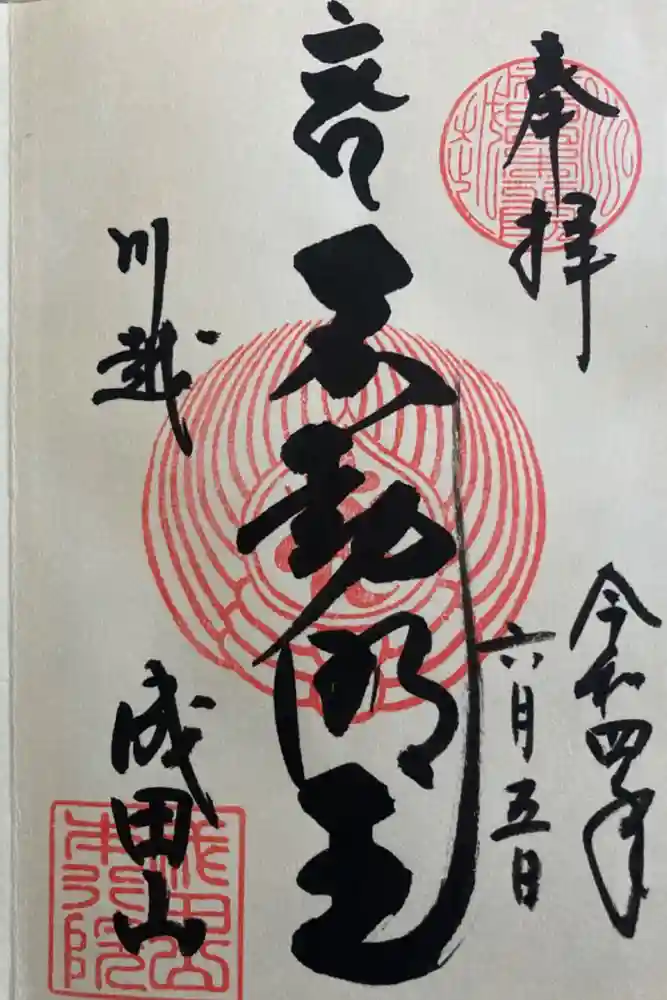 奉拝
令和四年
六月五日
不動明王
川越
成田山
成田山
本行院